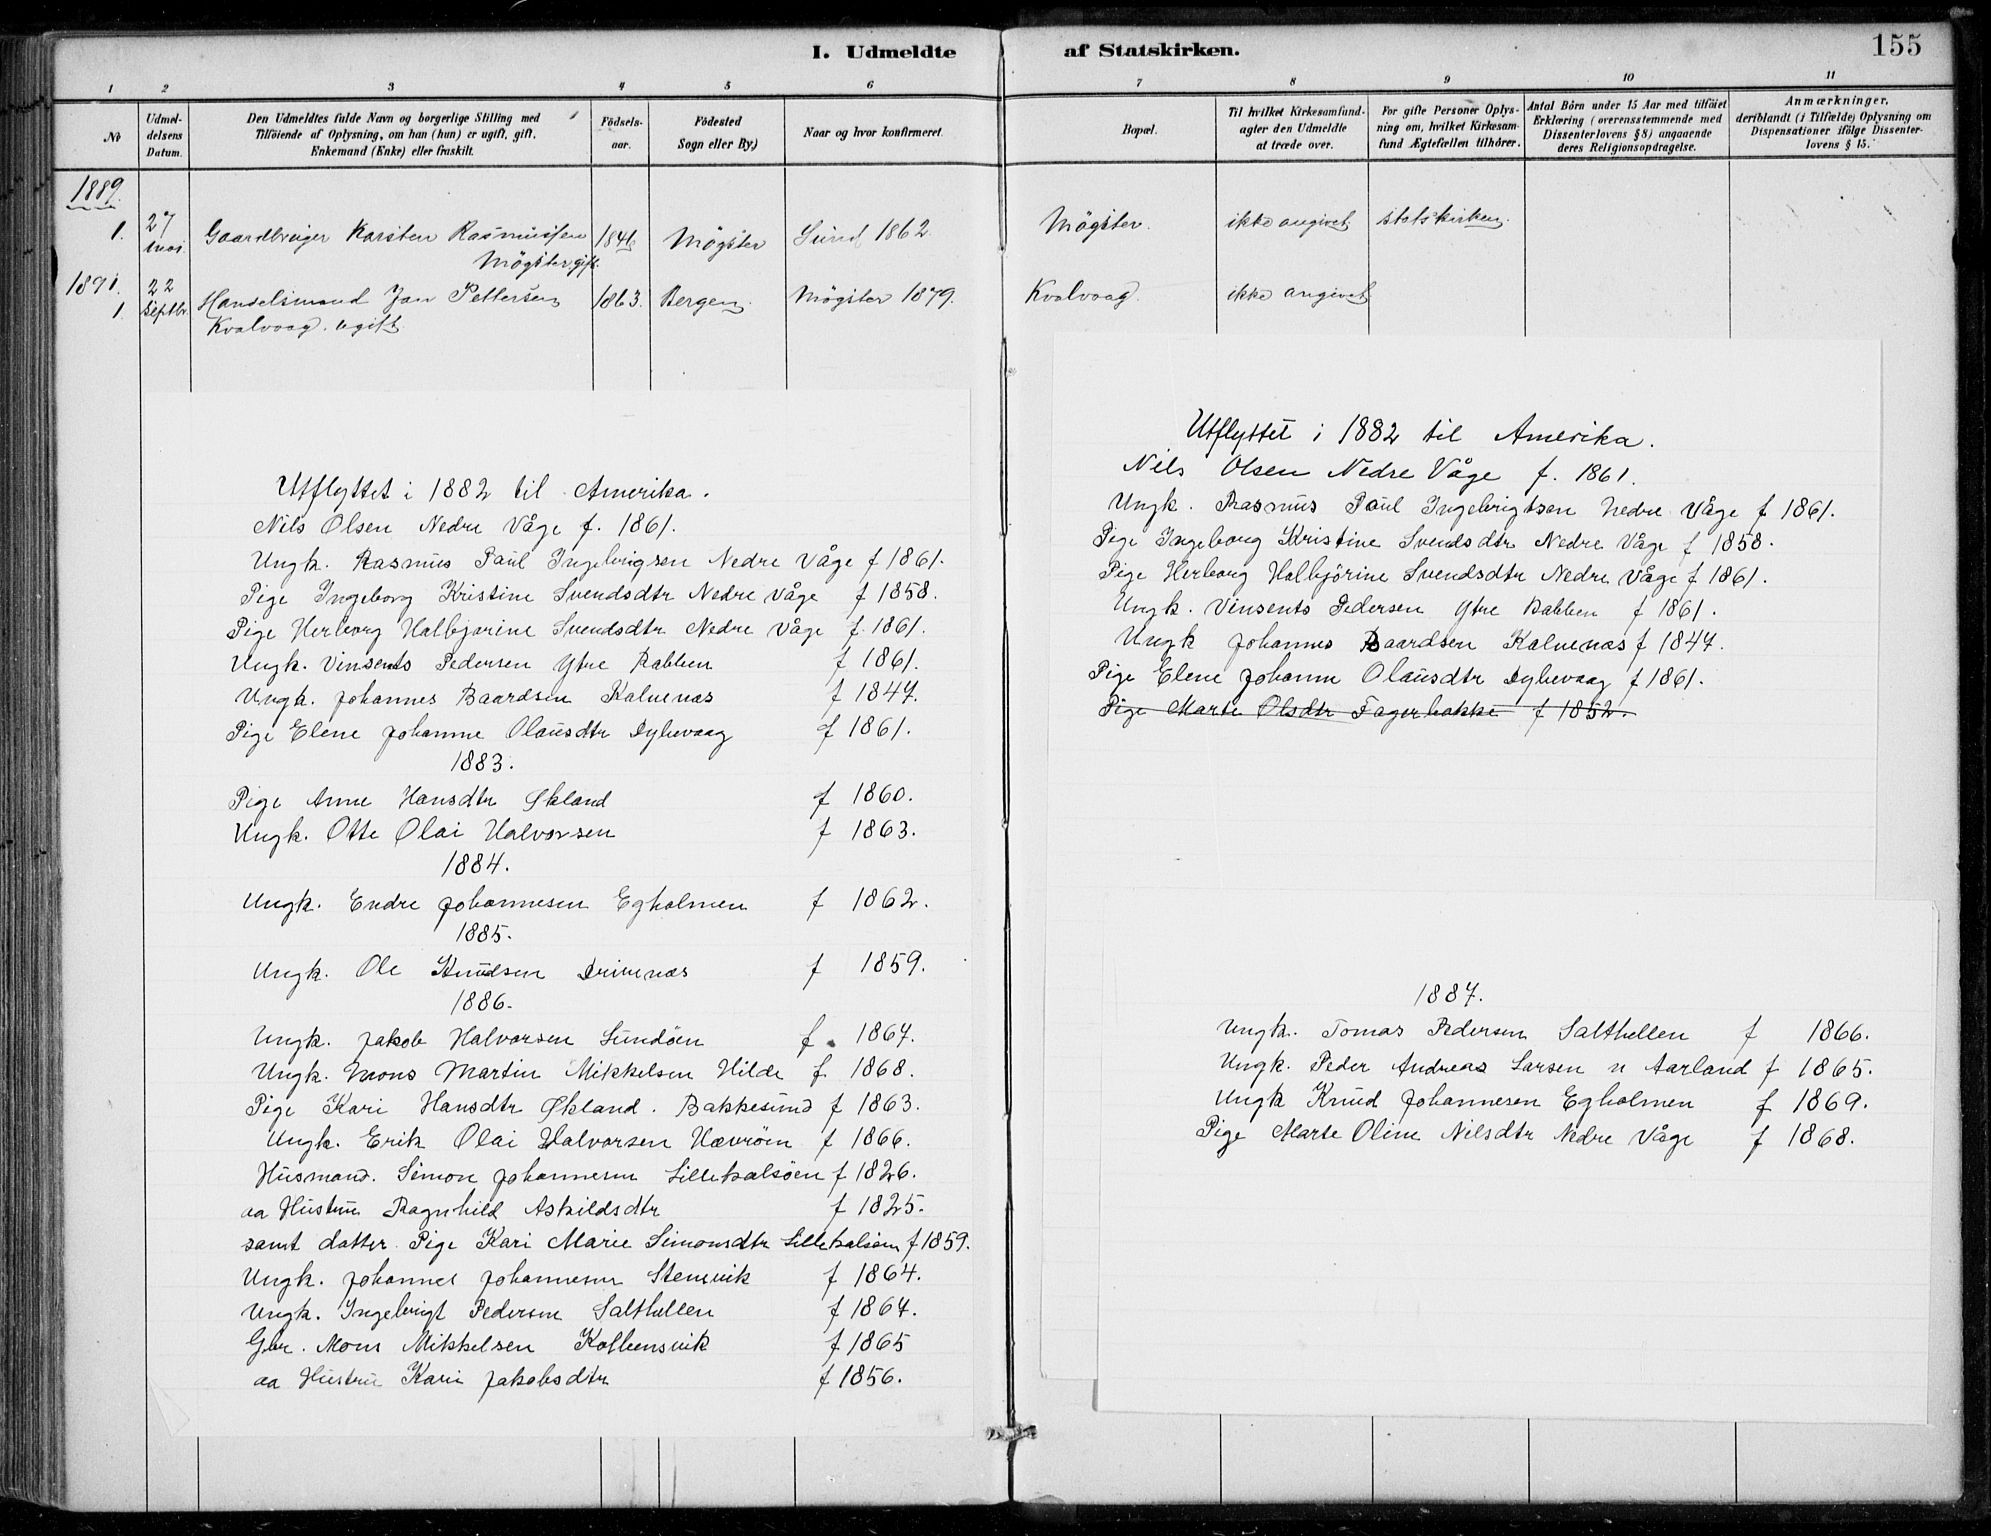 I. Udmeldte af Statskirken.
155
1 2 3 4 5 6 7 8 9 10 11
No
Udmel-
delsens
Datum.
Den Udmeldtes fulde Navn og borgerlige Stilling med
Tilföiende af Oplysning, om han (hun) er ugift, gift,
Enkemand (Enke) eller fraskilt.
Födsels-
aar.
Födested
Sogn eller By.)
Naar og hvor konfirmeret.
Bopæl.
Til hvilket Kirkesamfund
agter den Udmeldte
at træde over.
For gifte Personer Oplys-
ning om, hvilket Kirkesam-
fund Ægtefællen tilhörer.
Antal Börn under 15 Aar med tilföiet
Erklæring (overensstemmende med
Dissenterlovens § 8) angaaende
deres Religionsopdragelse.
Anmærkninger,
deriblandt (i Tilfælde) Oplysning om
Dispensationer ifölge Dissenter-
lovens § 15.
1889.
1. 27 Gaardbruger Karsten Rasmussen 1846 Mögster Sund 1862. Mögster. ikke angivet statskirken.
mai. Mögster, gift.
1891. 22 Handelsmand Jan Pettersen 1863. Bergen. Mögster 1879. Kvalvaag. ikke angivet
1. Septbr. Kvalvaag. ugift.
Utflyttet i 1882 til Amerika.
Nils Olsen Nedre Våge f. 1861.
Ungk. Rasmus Paul Ingebrigsen Nedre Våge f 1861.
Pige Ingeborg Kristine Svendsdtr Nedre Våge f 1858.
Pige Herborg Halbjörine Svendsdtr Nedre Våge f. 1861.
Ungk. Vinsents Pedersen Ytre Rabben f 1861.
Ungk. Johannes Baardsen Kalvenas f 1847.
Pige Elene Johanne Olausdtr Dybevaag f 1861.
1883.
Pige Anne Hansdtr Økland f 1860.
Ungk. Otte Olai Halvorsen f 1863.
1884.
Ungk. Endre Johannesen Egholmen f 1862.
1885.
Ungk. Ole Knudsen Drivenas f 1859.
1886.
Ungk. Jakob Halvorsen Sundöen f. 1867.
Ungk. Mons Martin Mikkelsen Hilde f. 1868.
Pige Kari Hansdtr Økland. Bakkesund f 1863.
Ungk. Erik Olai Halvorsen Hevröen f 1866.
Husmand. Simon Johannesen Lillekalsöen f 1826.
aa Hustru Ragnhild Askildsdtr f 1825.
samt datter Pige Kari Marie Simonsdtr Lillekalsöen f 1859.
Ungk. Johannes Johannesen Stensvik f 1864.
Ungk. Ingebrigt Pedersen Salthellen f 1864.
Gbr. Mons Mikkelsen Kolbensvik f 1865
aa Hustru Kari Jakobsdtr f 1856.
Utflyttet i 1882 til Amerika.
Nils Olsen Nedre Våge f. 1861.
Ungk. Rasmus Paul Ingebrigtsen Nedre Våge f 1861.
Pige Ingeborg Kristine Svendsdtr Nedre Våge f 1858.
Pige Herborg Halbjörine Svendsdtr Nedre Våge f 1861.
Ungk. Vinsents Pedersen Ytre Rabben f 1861.
Ungk Johannes Baardsen Kalvenas f 1847.
Pige Elene Johanne Olausdtr Dybevaag f 1861.
Pige Marte Olsdtr Fagerbakke f 1852.
1887.
Ungk. Tomas Pedersen Salthellen f 1866.
Ungk. Peder Andreas Larsen n Aarland f 1865.
Ungk Knud Johannesen Egholmen f 1869.
Pige Marte Oline Nilsdtr Nedre Våge f 1868.